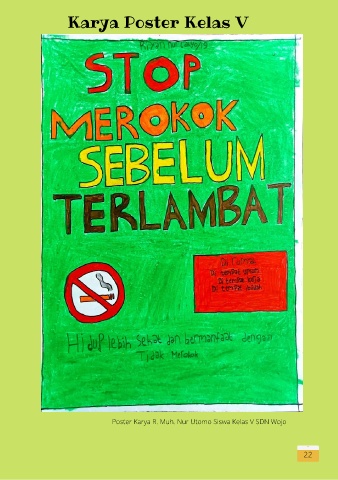 Karya Poster Kelas V
STOP
MEROKOK
SEBELUM
TERLAMBAT
Di tempat umum
Di tempat kerja
Di tempat
Hidup lebih sehat dan bermanfaat dengan
Tidak Merokok
Poster Karya R. Muh. Nur Utomo Siswa Kelas V SDN Wojo
22